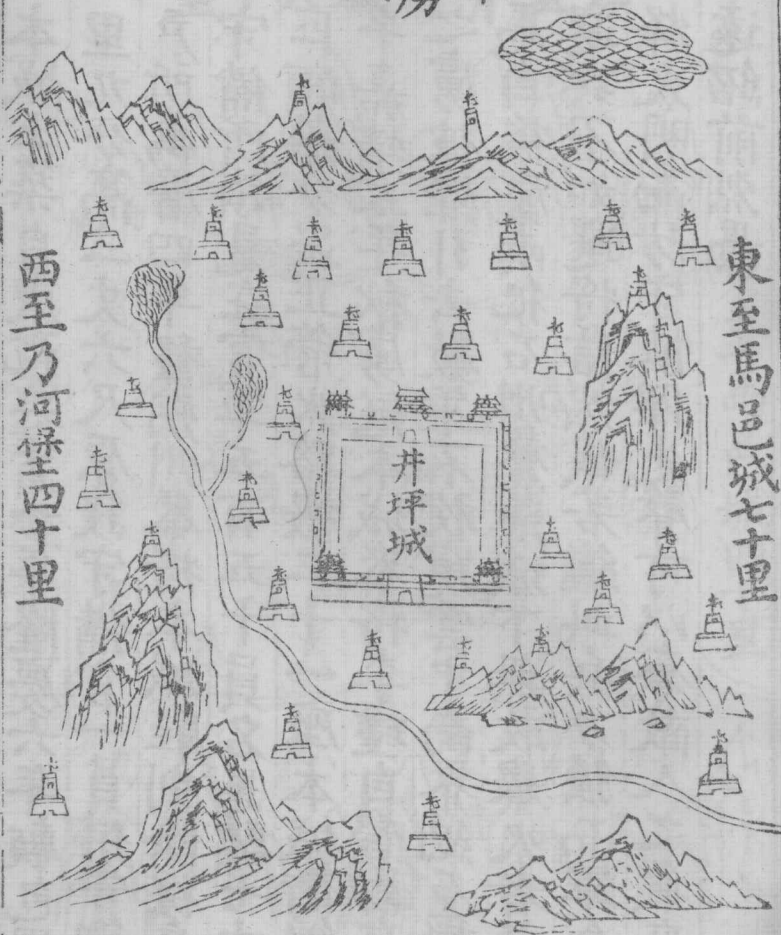 東至馬邑城七十里
井坪城
西至乃河堡四十里